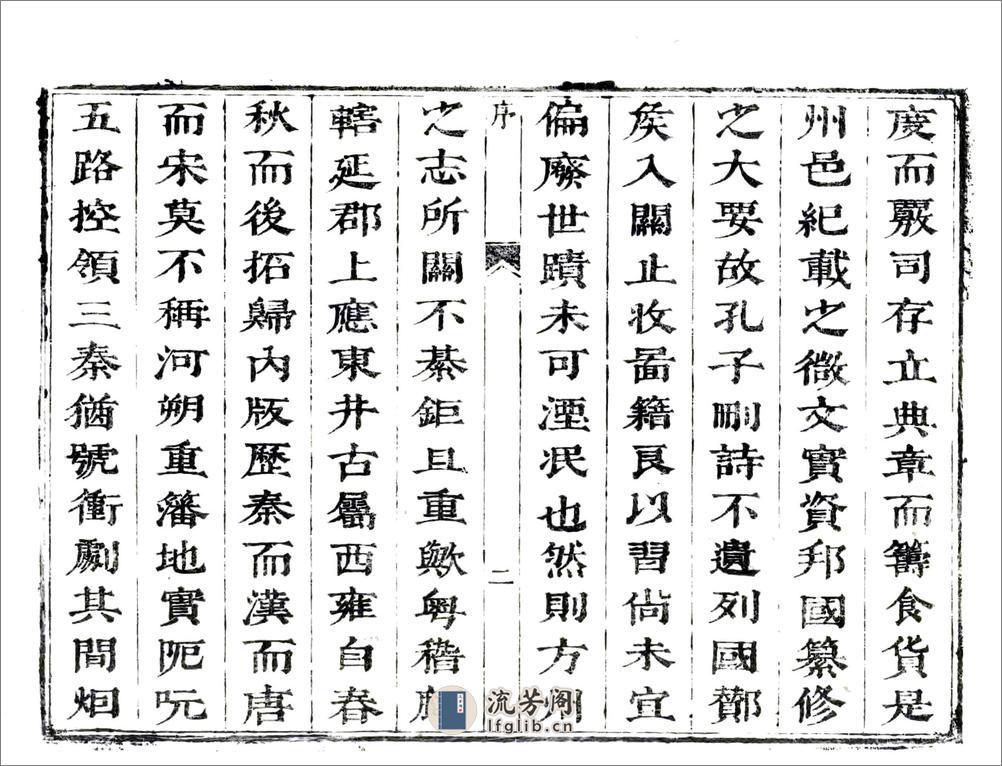 度而嚴司存立典章而籌食貨是
州邑紀載之微文實資邦國纂修
之大要故孔子刪詩不遺列國酇
矦入關止收啚籍良以習尙未宜
偏廢世蹟未可湮泯也然則方
序
二
之志所關不綦鉅且重歟粤稽
轄延郡上應東井古屬西雍自春
秋而後拓歸內版歷秦而漢而唐
而宋莫不稱河朔重藩地實阨吭
五路控領三秦猶號衝劇其間炯
流芳阁
lfglib.cn